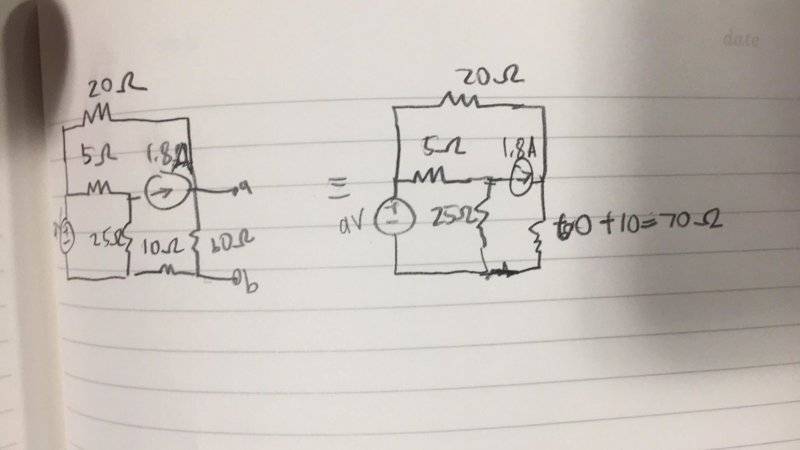 date
20Ω 20Ω
5Ω 1.8A 5Ω 1.8A
a
≡
25Ω 10Ω 60Ω 9V 25Ω 60+10=70Ω
b